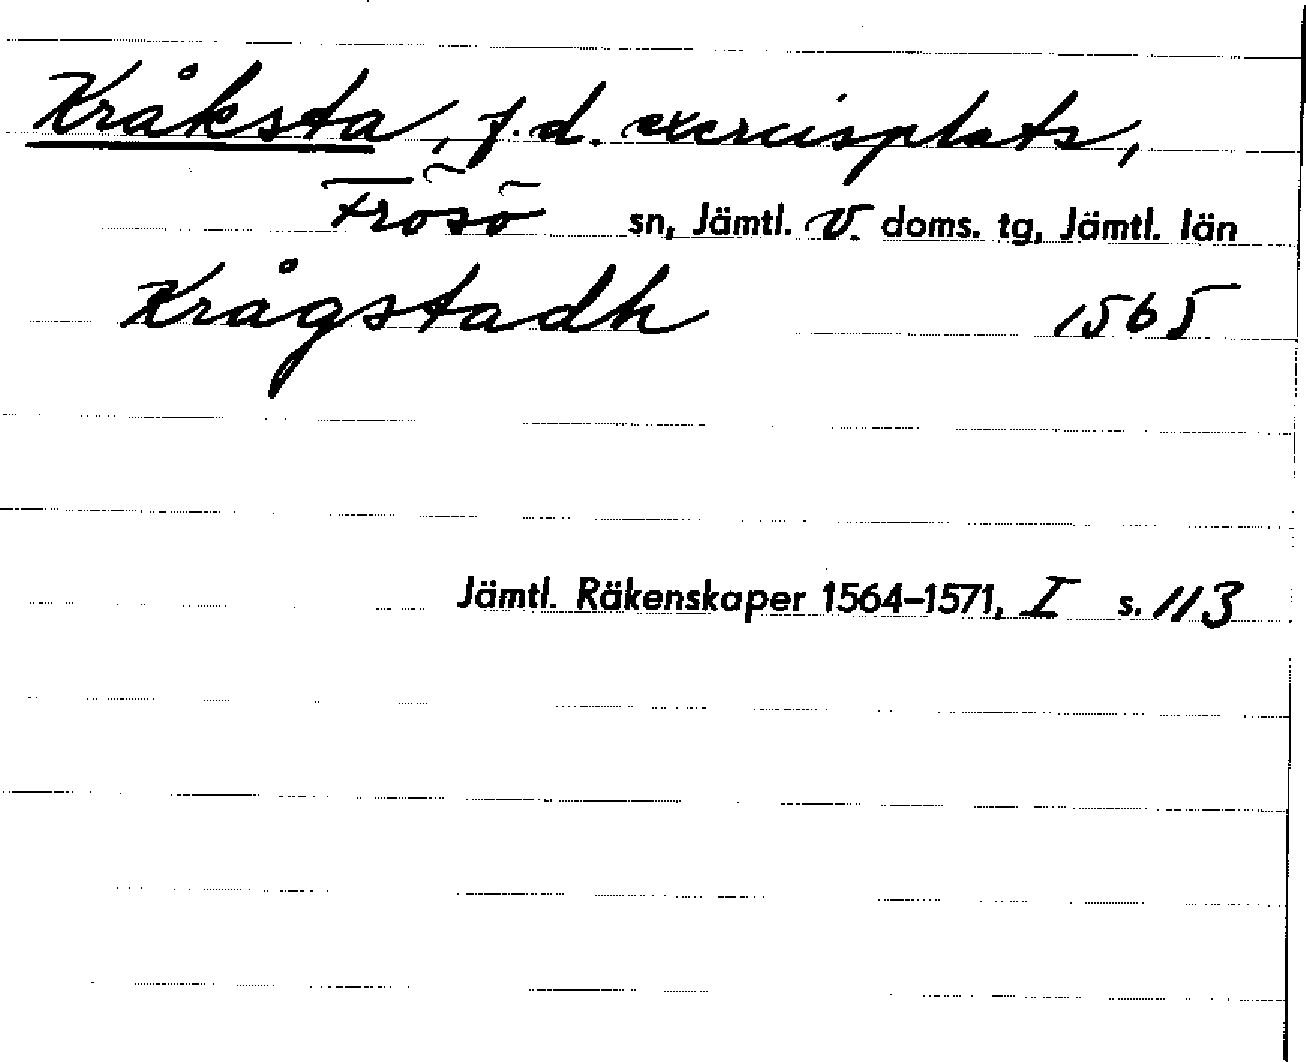 Kråksta, f.d. exercisplats,
Frösö sn, Jämtl. V. doms. tg, Jämtl. län
Krågstadh 1565
Jämtl. Räkenskaper 1564–1571, I s. 113